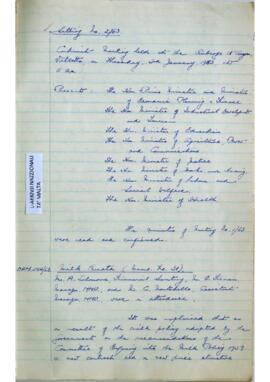 Meeting No. 2/63
Cabinet Meeting held at the Auberge
Valletta on Thursday, January 1963 at
Present: The Hon. Prime Minister and Minister
of Economic Planning & Finance
The Hon. Minister of Industrial Development
and Tourism
The Hon. Minister of Education
The Hon. Minister of Agriculture, Power
and Communications
The Hon. Minister of Justice
The Hon. Minister of Works and Housing
The Hon. Minister of Labour and
Social Welfare
The Hon. Minister of Health
L-ARKIVJI NAZZJONALI
TA' MALTA
The minutes of Meeting No. 1/63
were read and confirmed.
Milk
Mr. Secretary, Mr.
Manager MMU, and Mr. Assistant
Manager MMU, were in attendance.
It was explained that as
a result of the milk policy adopted by the
Government on the recommendations of the
Committee of Enquiry into the Milk Policy 1959
a new contract and a new price structure